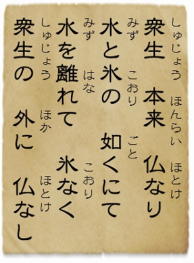 衆生　本来　仏なり
しゅじょう　ほんらい　ほとけ
水と氷の　如くにて
みず　こおり　ごと
水を離れて　氷なく
みず　はな　こおり
衆生の　外に　仏なし
しゅじょう　ほか　ほとけ